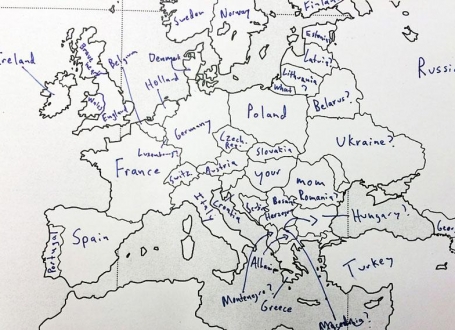 Sweden
Norway
Finland
Estonia?
Latvia?
Lithuania?
What?
Russia
Ireland
Wales
England
Belgium
Denmark
Holland
Belarus?
Germany
Poland
Luxembourg
Czech.
Rep.
Slovakia
Ukraine?
France
Switz.
Austria
your
mom
Romania?
Italy
Croatia
Hungary?
Portugal
Spain
Albania
Turkey
Montenegro?
Greece
Macedonia?